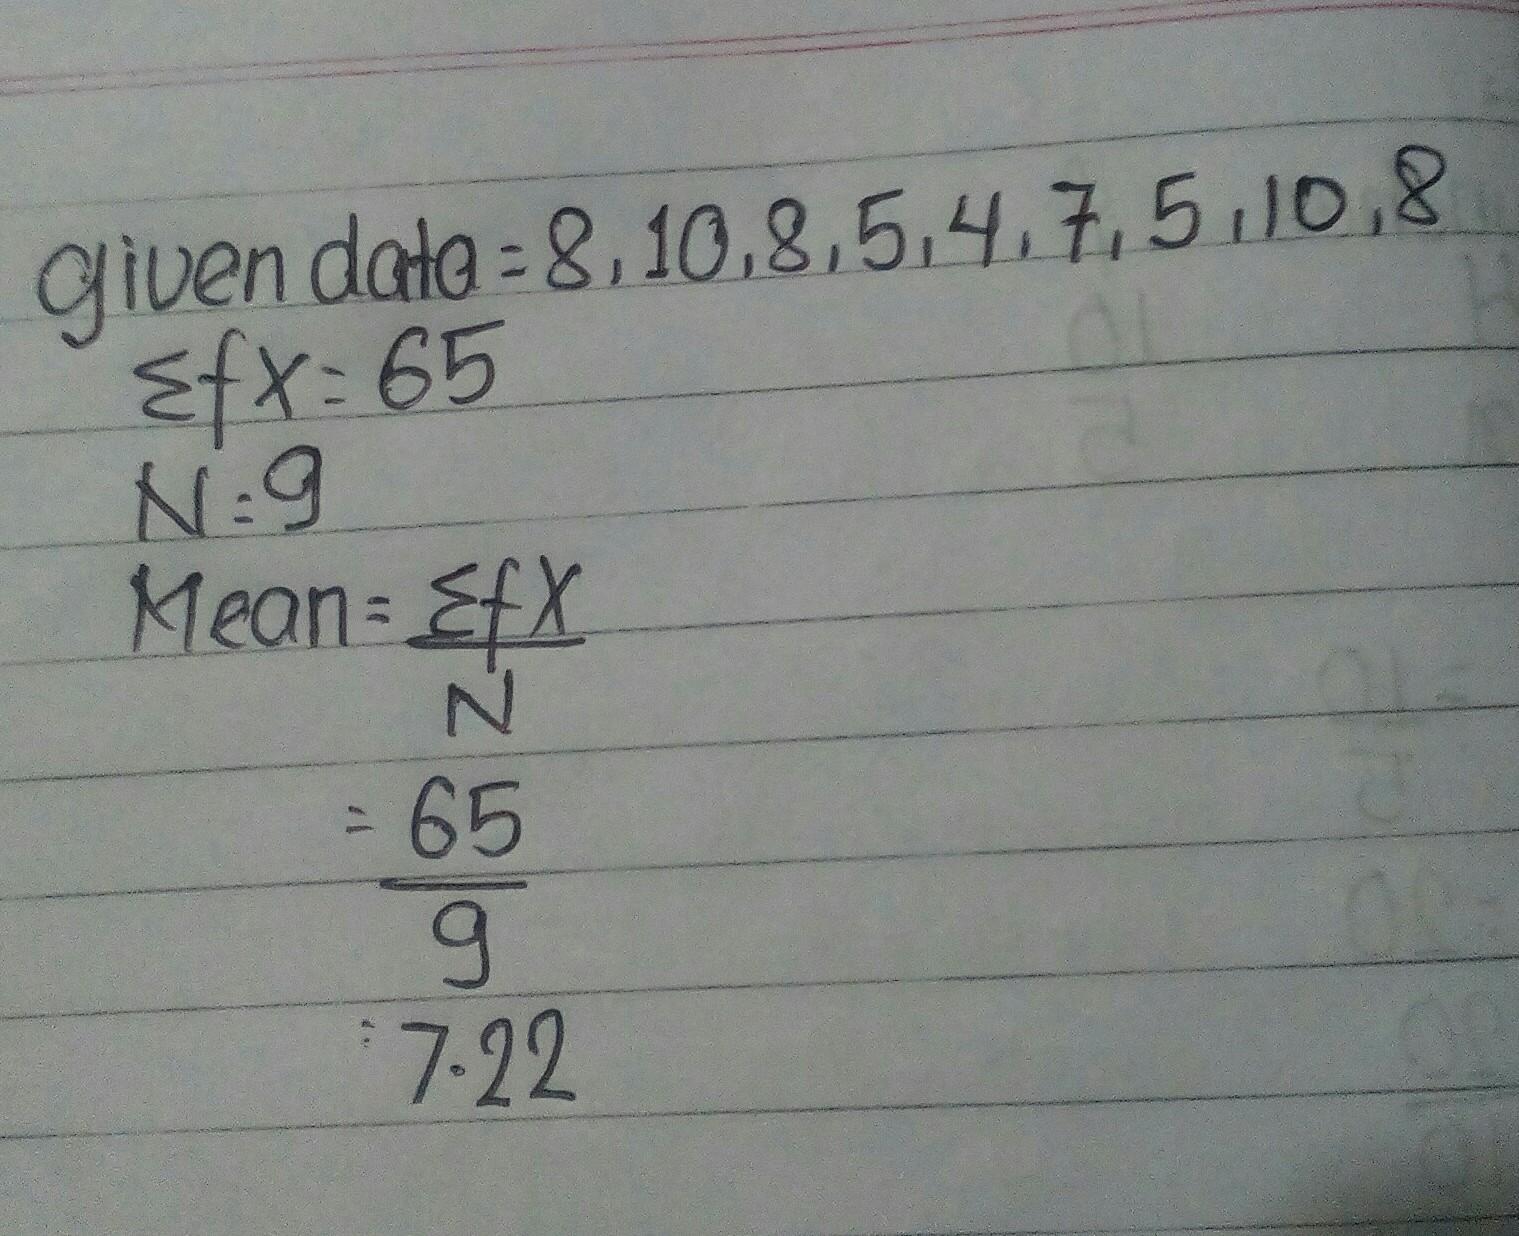 given data = 8, 10, 8, 5, 4, 7, 5, 10, 8
Σfx = 65
N = 9
Mean = Σfx
N
= 65
9
= 7.22